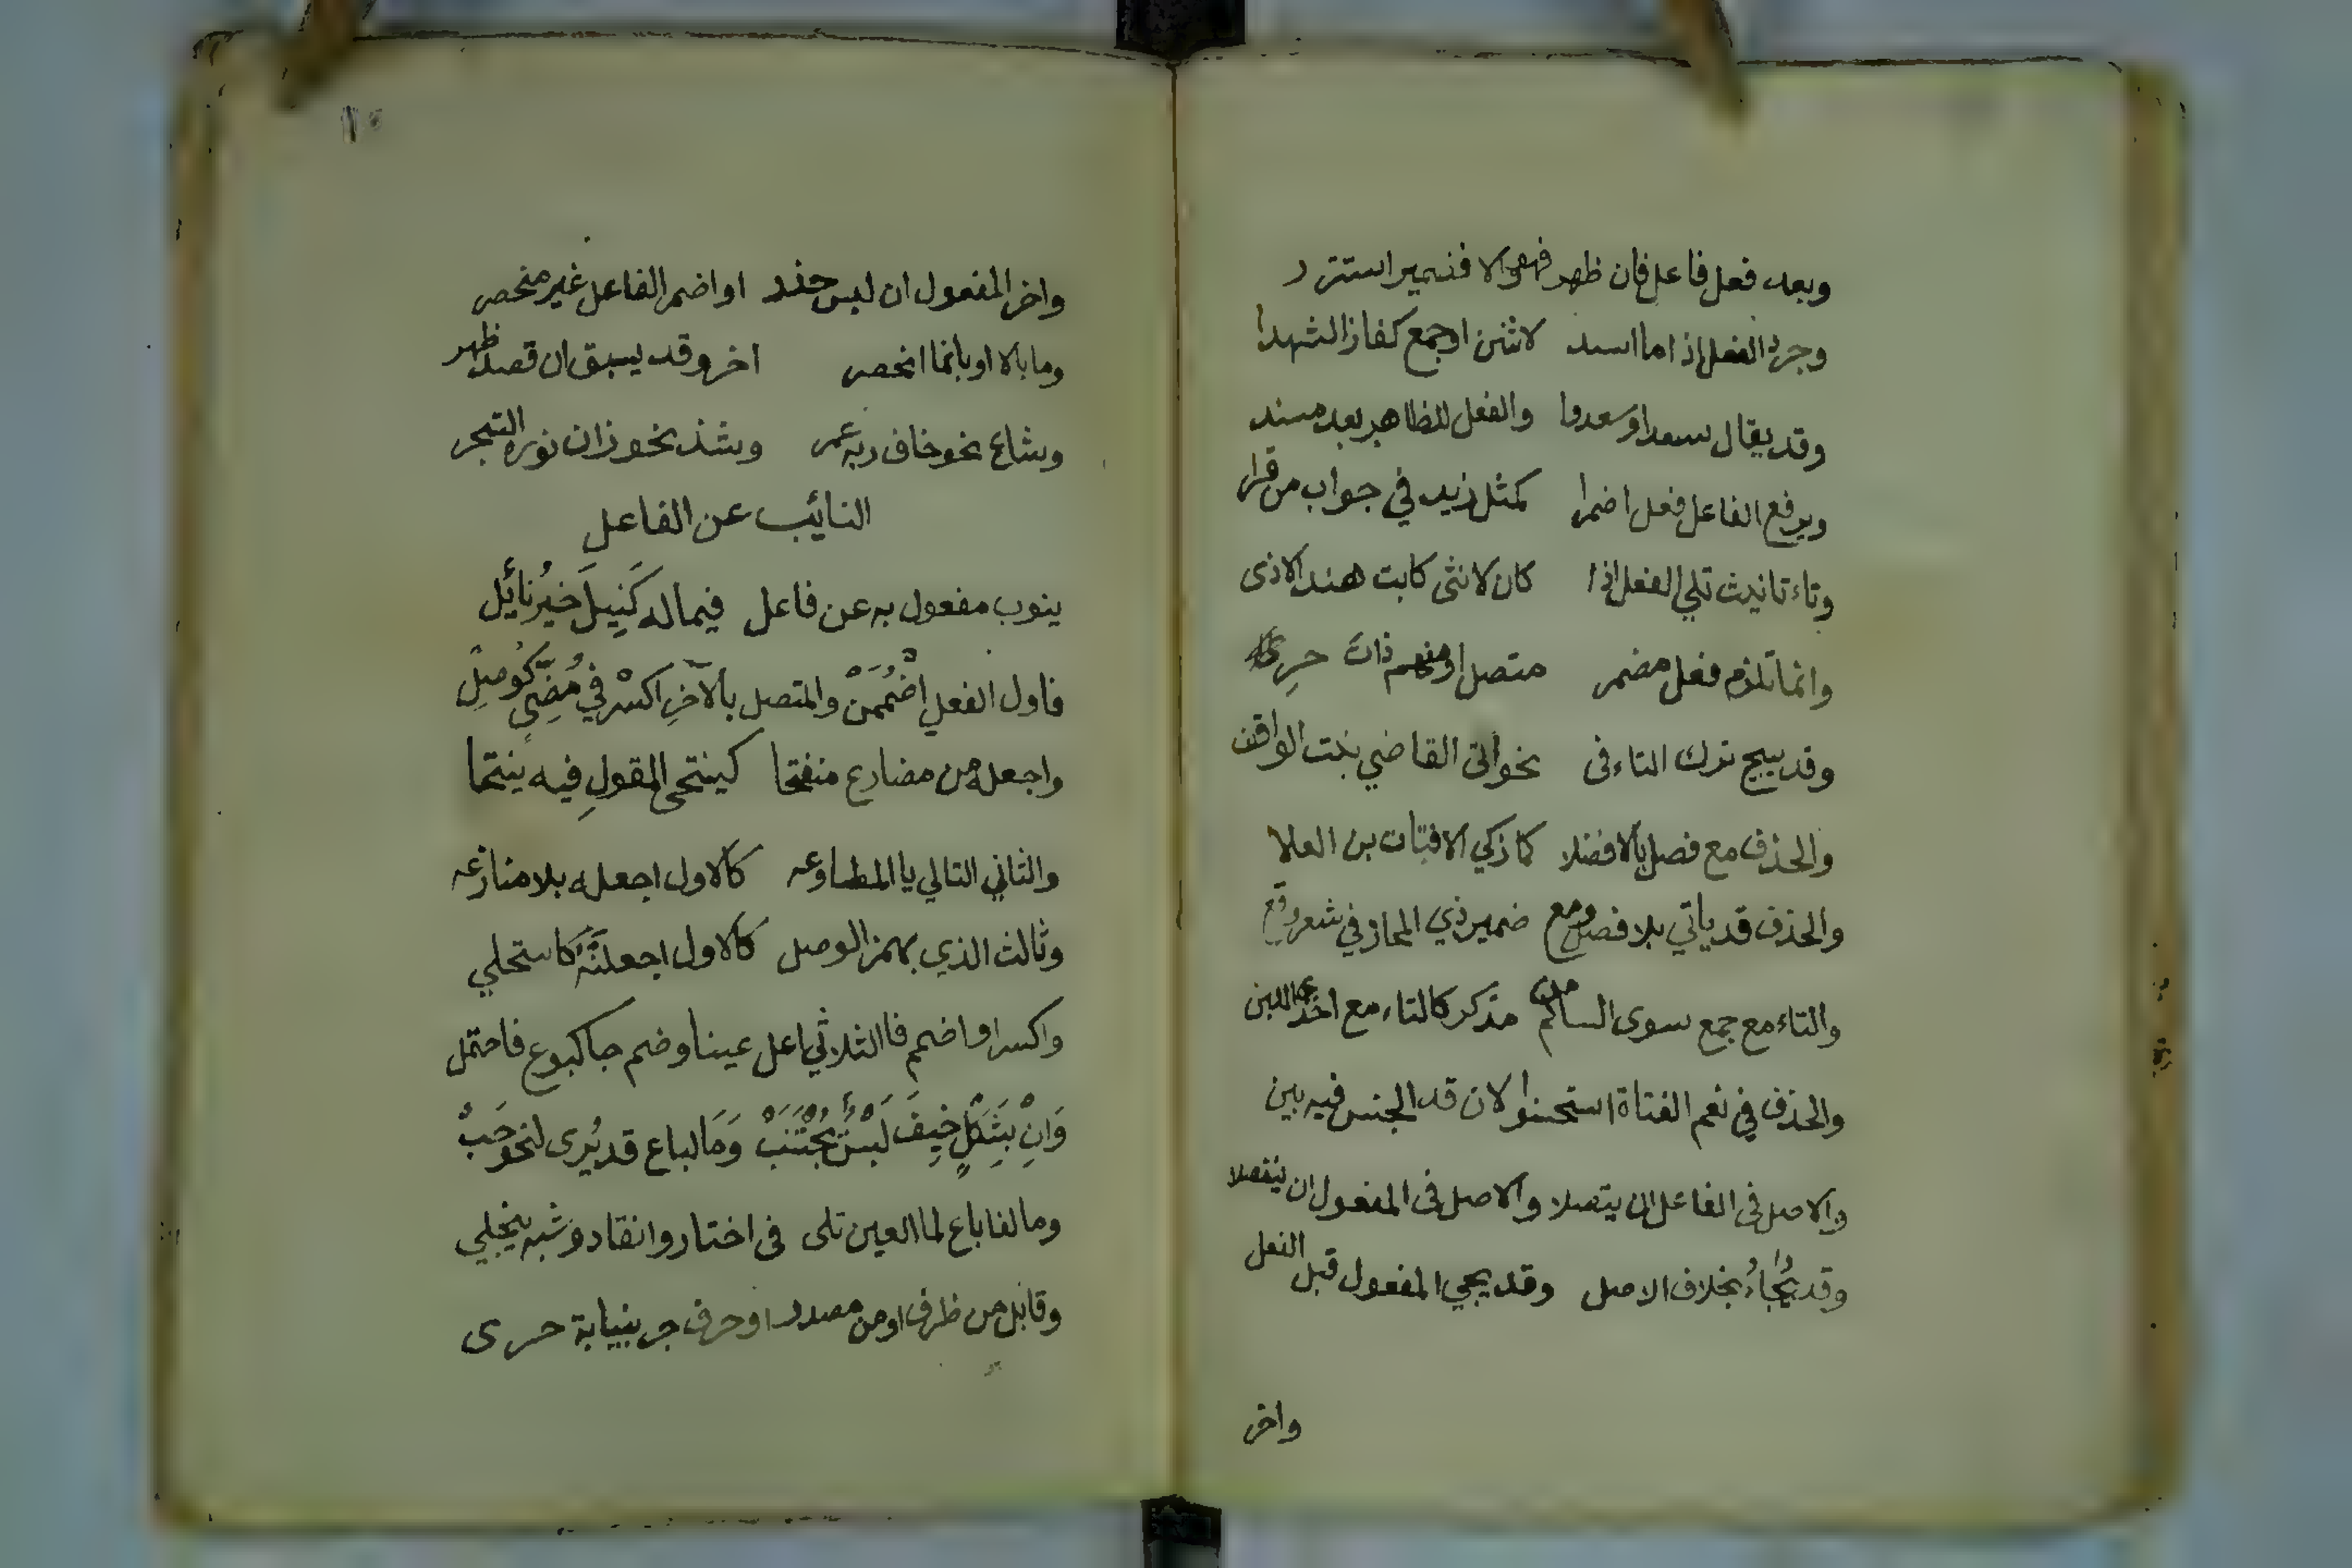 وبعد فعل فاعل فان ظهر فهو والا فضمير استتر
وجرد الفعل اذا ما اسند لاثنين او جمع كفاز الشهدا
وقد يقال سعدا وسعدوا والفعل للظاهر بعد مسند
ويرفع الفاعل فعل اضمرا كمثل زيد في جواب من قرا
وتاء تانيث تلي الفعل اذا كان لانثى كابت هند الاذى
وانما تلزم فعل مضمر متصل او مفهم ذات حر
وقد يبيح ترك التاء فى نحو اتى القاضي بنت الواقف
والحذف مع فصل بالا فضلا كما زكي الا فتات بن العلا
والحذف قد ياتي بلا فصل ومع ضمير ذي المجاز في شعر وقع
والتاء مع جمع سوى السالم من مذكر كالتاء مع احدى اللبن
والحذف في نعم الفتاة استحسنوا لان قد الجنس فيه بين
والاصل فى الفاعل ان يتصلا والاصل فى المفعول ان ينفصلا
وقد يُجاءُ بخلاف الاصل وقد يجي المفعول قبل الفعل
واخر
١٠
واخر المفعول ان لبس حذر او اضمر الفاعل غير منحصر
وما بالا او بانما انحصر اخر وقد يسبق ان قصد ظهر
وشاع نحو خاف ربه عمر وشذ نحو زان نوره الشجر
النائب عن الفاعل
ينوب مفعول به عن فاعل فيما له كَنِيلَ خيرُ نائِل
فاول الفعل اضْمُمَنْ والمتصل بالآخرِ اكسْر في مُضِّيٍ كوُصِلْ
واجعله من مضارع منفتحا كينتحى المقولِ فيه ينتحا
والثاني التالي يا المطاوعه كالاول اجعله بلا منازعه
وثالث الذي بهمز الوصل كالاول اجعلنَّهُ كاستحلي
واكسر او اضمم فا الثلاثي اعل عينا وضم جا كبوع فاحتمل
وَانِْ بِشَكْلٍ خِيفَ لَبْسٌ يُجْتَنَبْ وَمَا لباع قد يُرى لنحو حَبْ
وما لفا باع لما العين تلى فى اختار وانقاد وشبه ينجلي
وقابل من ظرف او من مصدر او حرف جر بنيابة حرى